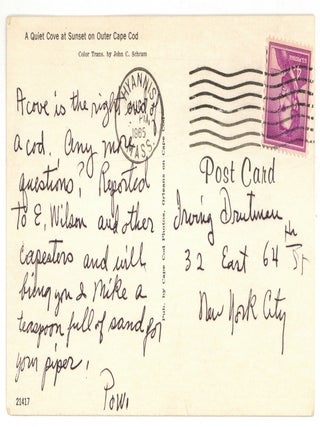 A Quiet Cove at Sunset on Outer Cape Cod
Color Trans. by John C. Schram
HYANNIS
PM
1965
MASS.
A cove is the right word of
a cod. Any more
questions? Reported
to E. Wilson and other
Capesters and will
bring you & Mike a
teaspoon full of sand for
your piper.
21417
Pub. by Cape Cod Photos, Orleans on Cape Cod
Post Card
Irving Drutman
32 East 64 th St
New York City